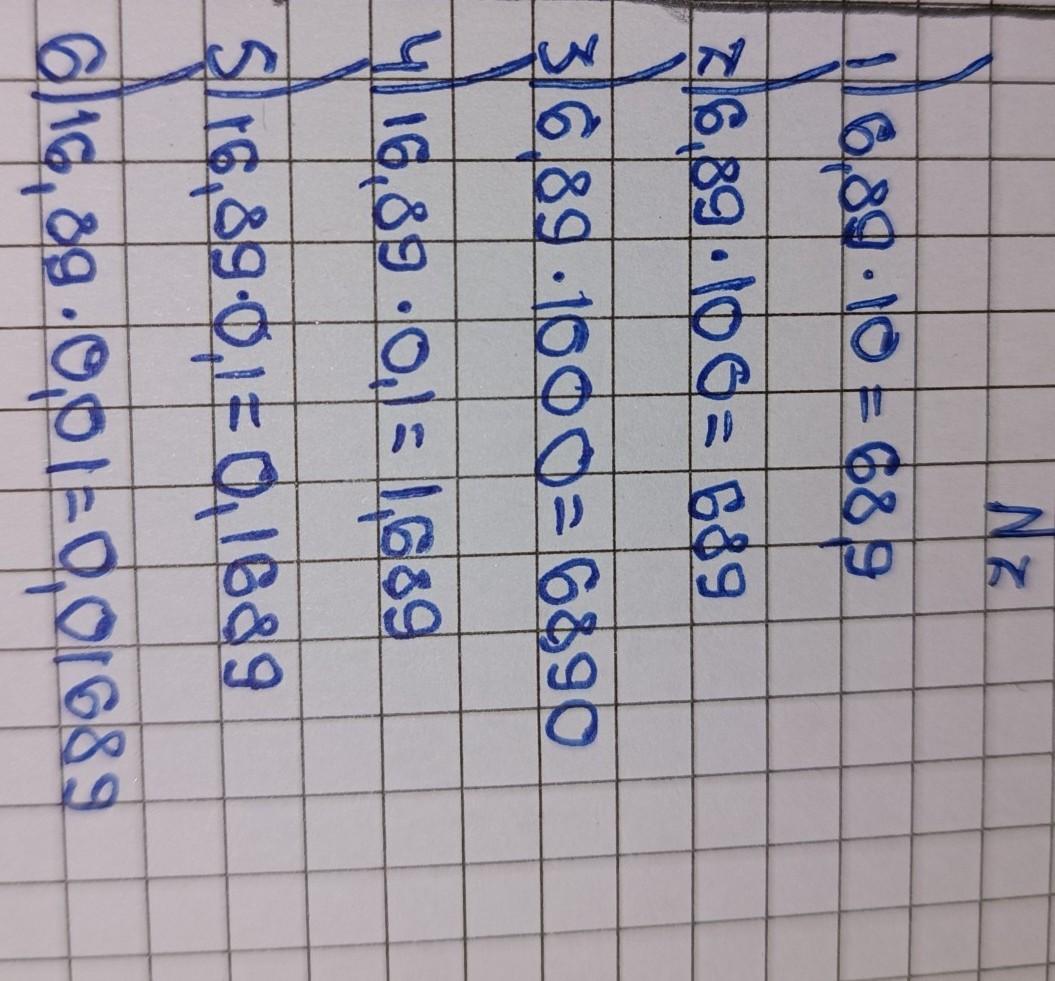 N 2
1) 6,89 · 10 = 68,9
2) 6,89 · 100 = 689
3) 6,89 · 1000 = 6890
4) 16,89 · 0,1 = 1,689
5) 16,89 · 0,1 = 0,1689
6) 16,89 · 0,01 = 0,01689